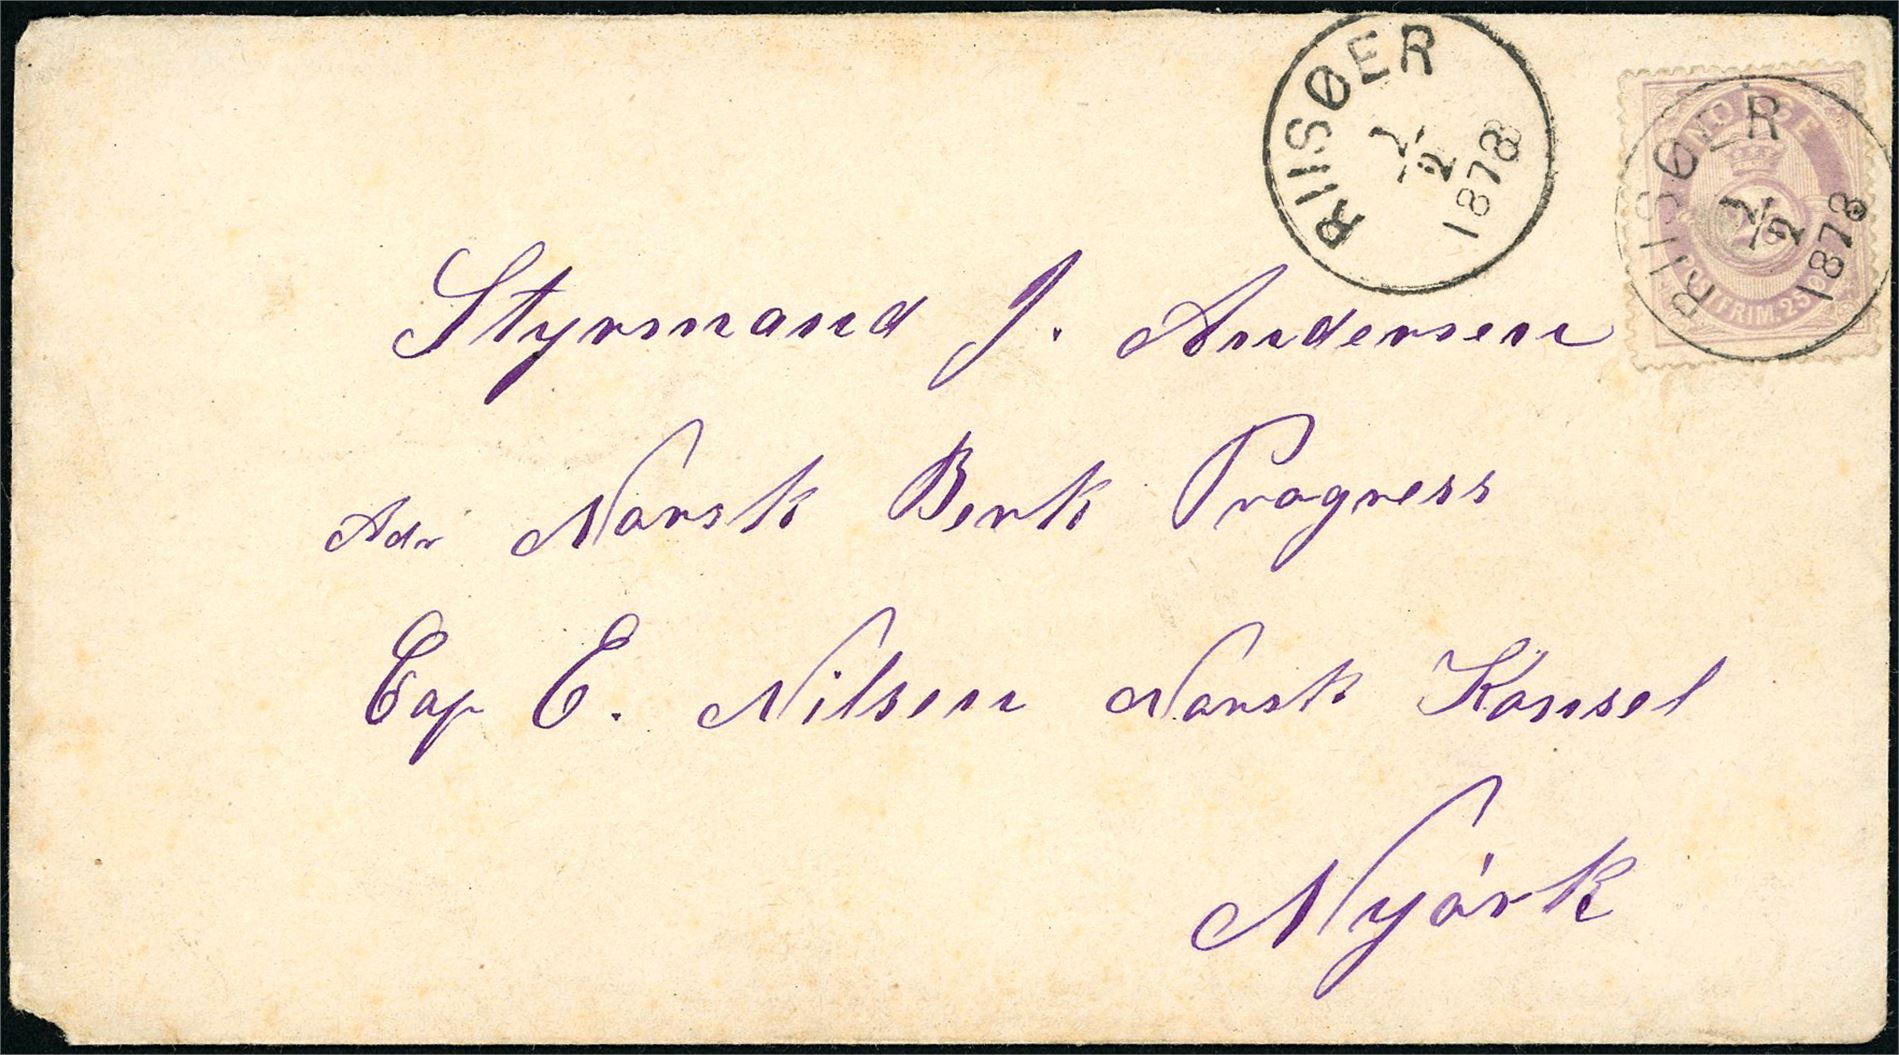 RIISØER
2/2
1878
NORGE
FRIM. 25
RIISØER
2/2
1878
Styrmand J. Andersen
Adr Norsk Berk Progress
Cap E. Nilsen Norsk Konsel
Nyórk